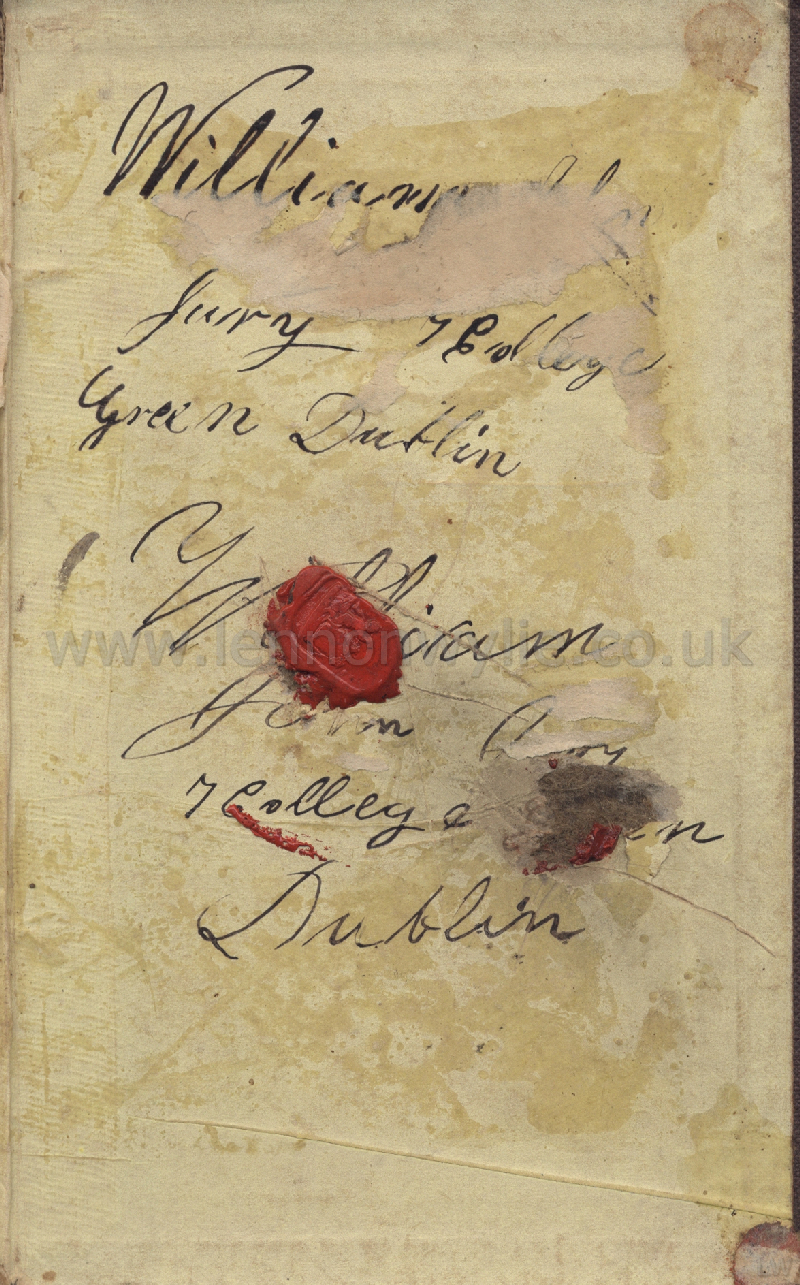 William
Jury 7 College
Green Dublin
William
John
7 College
Dublin
www.lennonwylie.co.uk